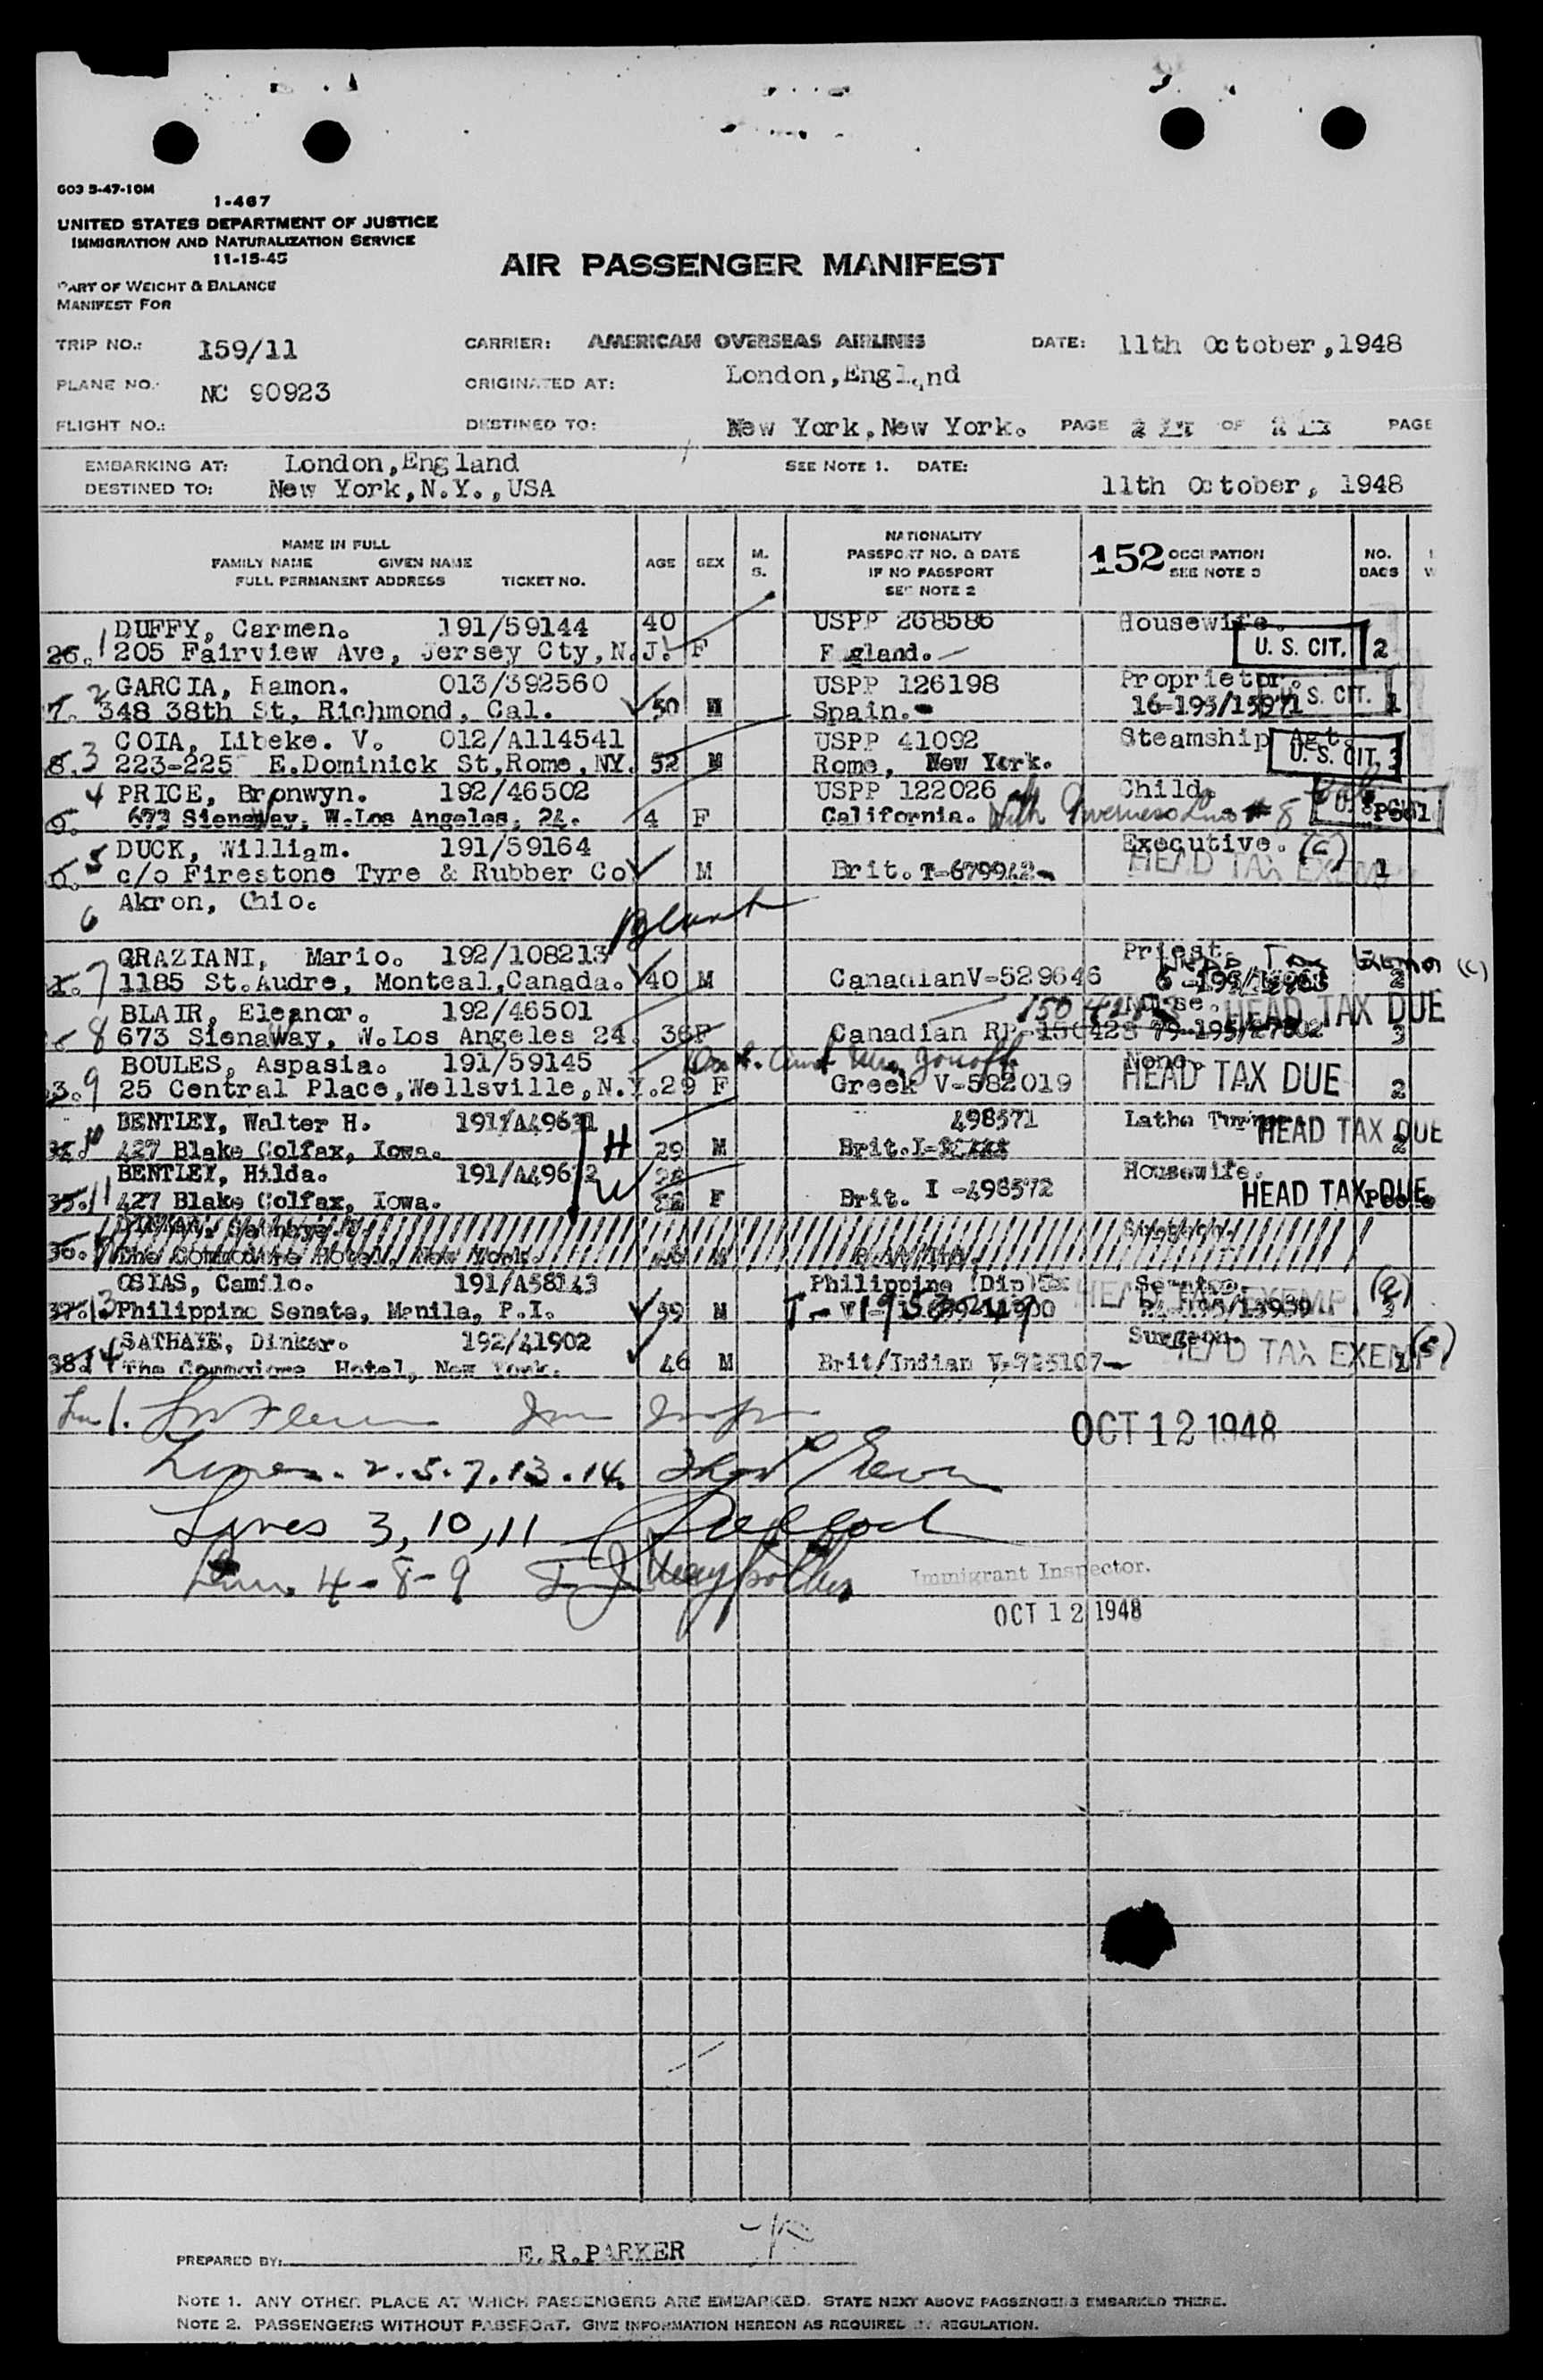 G03 5-47-10M
1-467
UNITED STATES DEPARTMENT OF JUSTICE
IMMIGRATION AND NATURALIZATION SERVICE
11-15-45
AIR PASSENGER MANIFEST
PART OF WEIGHT & BALANCE
MANIFEST FOR
TRIP NO.: 159/11 CARRIER: AMERICAN OVERSEAS AIRLINES DATE: 11th October, 1948
PLANE NO. NC 90923 ORIGINATED AT: London, England
FLIGHT NO.: DESTINED TO: New York, New York. PAGE 2 OF 2 PAGE
EMBARKING AT: London, England SEE NOTE 1. DATE:
DESTINED TO: New York, N.Y., USA 11th October, 1948
NAME IN FULL
FAMILY NAME GIVEN NAME
FULL PERMANENT ADDRESS TICKET NO.
AGE SEX M. S.
NATIONALITY
PASSPORT NO. & DATE
IF NO PASSPORT
SEE NOTE 2
152 OCCUPATION
SEE NOTE 3
NO.
BAGS
DUFFY, Carmen. 191/59144 40 USPP 268586 Housewife.
26. 1 205 Fairview Ave, Jersey Cty, N.J. F England. U. S. CIT. 2
GARCIA, Ramon. 013/392560 USPP 126198 Proprietor.
7. 2 348 38th St, Richmond, Cal. 50 M Spain. 16-195/15971 U. S. CIT. 1
COIA, Libeke. V. 012/A114541 USPP 41092 Steamship Agt.
8. 3 223-225 E.Dominick St, Rome, NY. 52 M Rome, New York. U. S. CIT. 3
4 PRICE, Bronwyn. 192/46502 USPP 122026 Child.
673 SienaWay, W.Los Angeles, 24. 4 F California. with # 8 U. S.
5 DUCK, William. 191/59164 Executive. (C)
c/o Firestone Tyre & Rubber Co M Brit. T-679942 HEAD TAX EXEMPT 1
6 Akron, Ohio.
Blank
GRAZIANI, Mario. 192/108213 Priest. Head Tax Exempt (C)
7 1185 St.Audre, Monteal, Canada. 40 M Canadian V-529646 2
BLAIR, Eleanor. 192/46501 Nurse. HEAD TAX DUE
8 673 SienaWay, W.Los Angeles 24. 36 F Canadian RP-150423 79-195/27802 3
BOULES, Aspasia. 191/59145 None.
9 25 Central Place, Wellsville, N.Y. 29 F Greek V-582019 HEAD TAX DUE 2
BENTLEY, Walter H. 191/A49631 498571 Lathe Turner HEAD TAX DUE
10 427 Blake Colfax, Iowa. H 29 M Brit. I- 2
BENTLEY, Hilda. 191/A49632 Housewife.
35. 11 427 Blake Colfax, Iowa. W F Brit. I-498572 HEAD TAX DUE
36. The Commodore Hotel, New York.
OSIAS, Camilo. 191/A58143 Philippine (Dip) Senator. (a)
37. 13 Philippine Senate, Manila, P.I. 59 M HEAD TAX EXEMPT
SATHAYE, Dinkar. 192/41902 Surgeon. (C)
38. 14 The Commodore Hotel, New York. 46 M Brit/Indian V-725107 HEAD TAX EXEMPT 1
OCT 12 1948
Lines. 2. 5. 7. 13. 14.
Lines 3, 10, 11
4-8-9
Immigrant Inspector.
OCT 12 1948
PREPARED BY: E.R.PARKER
NOTE 1. ANY OTHER PLACE AT WHICH PASSENGERS ARE EMBARKED. STATE NEXT ABOVE PASSENGERS EMBARKED THERE.
NOTE 2. PASSENGERS WITHOUT PASSPORT. GIVE INFORMATION HEREON AS REQUIRED BY REGULATION.